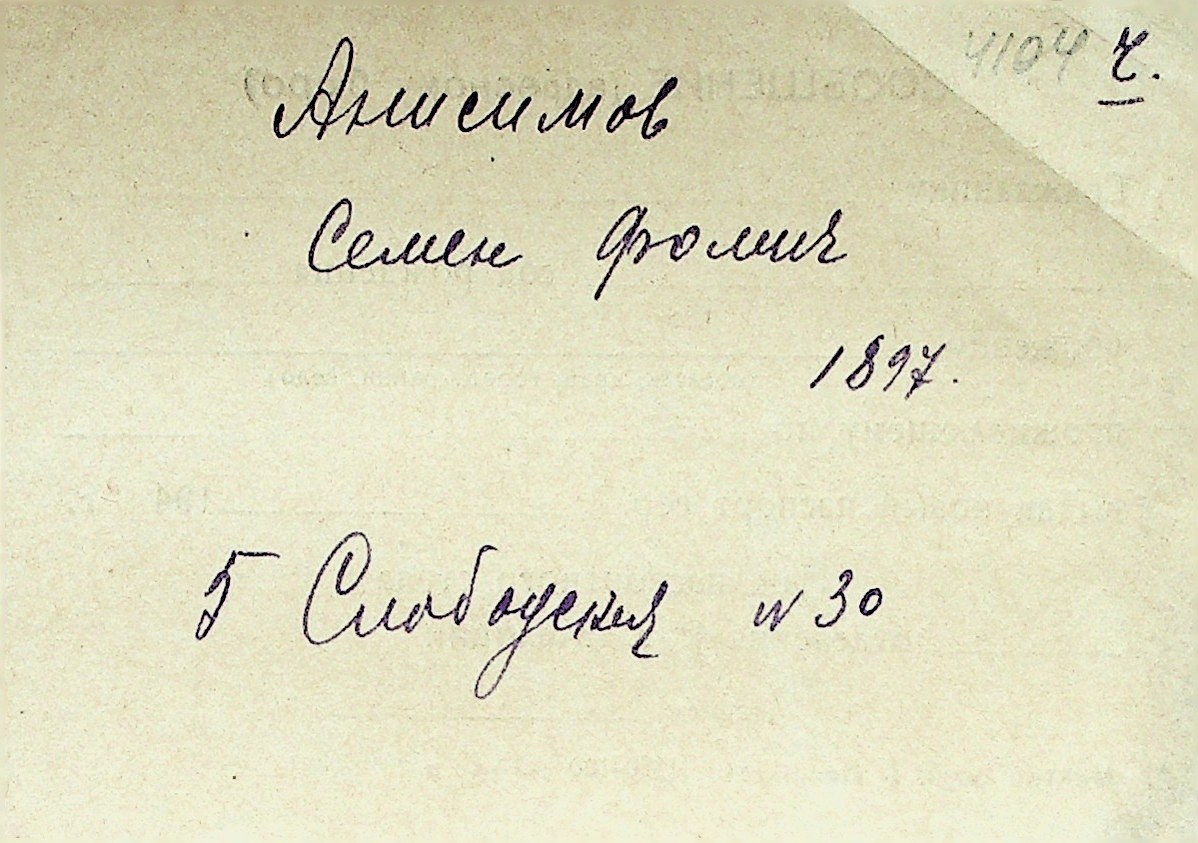 4104 ч.
Анисимов
Семен Фомич
1897.
Б Слободская N 30